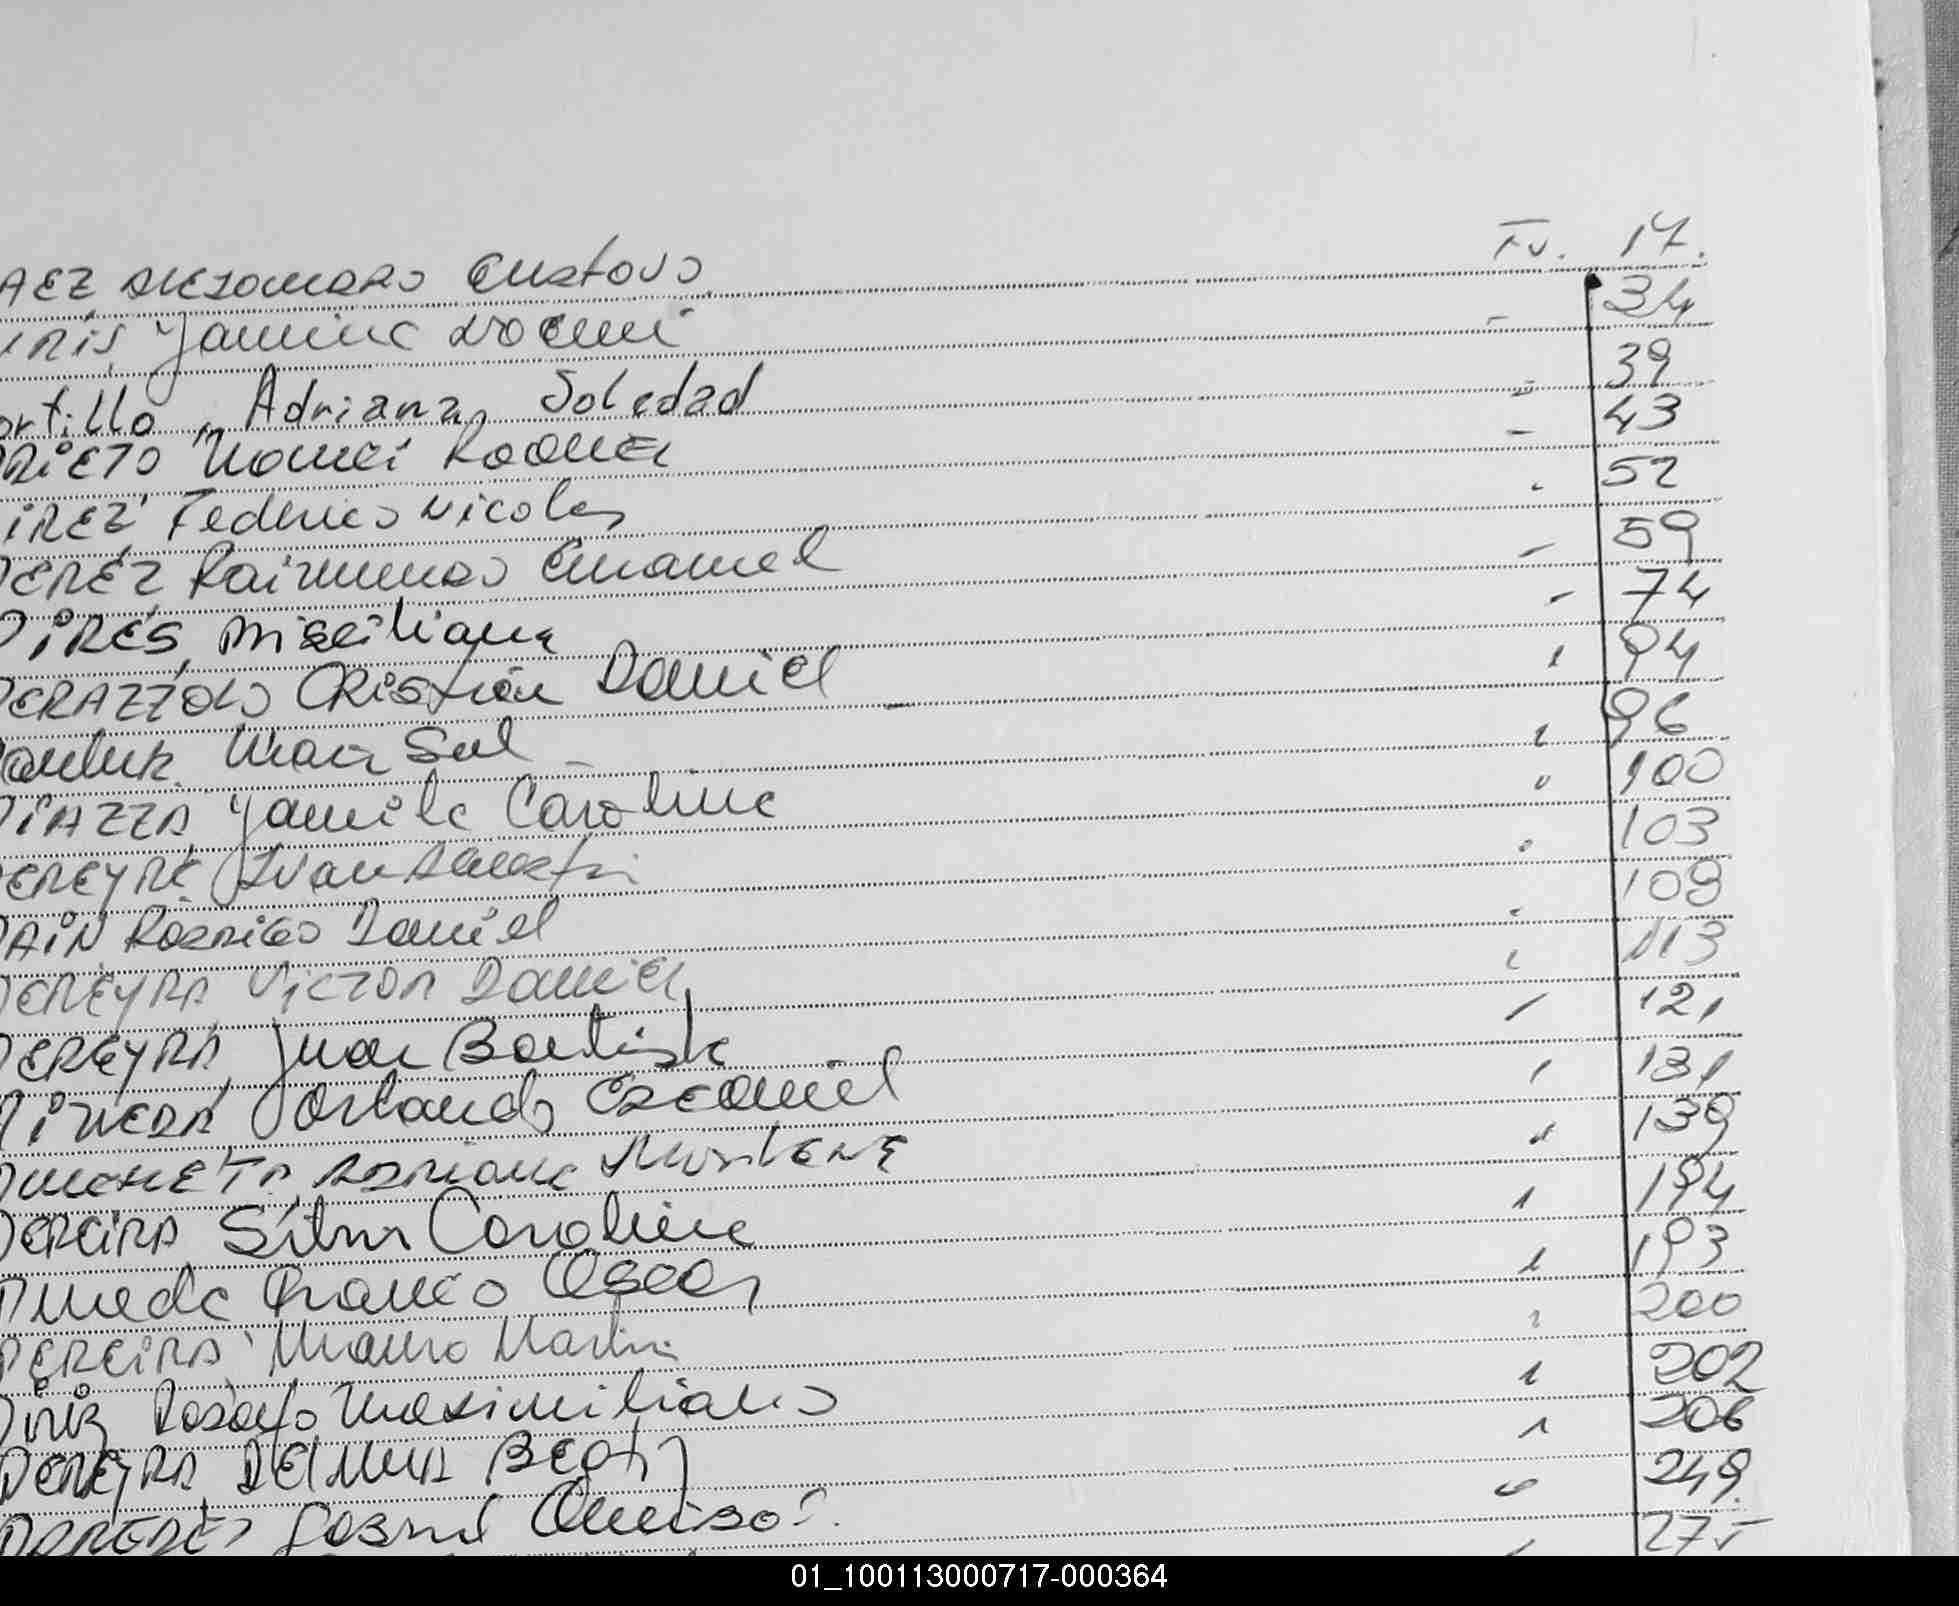 AEZ Alejandro Gustavo Fo. 17.
Yamina Noemi 34
ortillo, Adriana Soledad " 39
PRIETO Noemi Raquel - 43
IREZ Federico Nicolas 52
PEREZ Raimundo Emanuel 59
PIRES, Maximiliana 74
PERAZZOLO Cristian Daniel 94
Pauluk Mari Sol 96
PIAZZA, Yamila Carolina 100
PEREYRA Ivan Agustin 103
PAIN Rodrigo Daniel 109
PEREYRA Victor Daniel 113
PEREYRA, Juan Bautista 121
Orlando Ezequiel 131
Adriana Marlene 139
PEREIRA Silvia Carolina 194
Pineda Franco Oscar 193
PEREIRA Mauro Martin 200
Rodolfo Maximiliano 202
PEREYRA, Delmira Beatriz 206
PAREDES 249
275
01_100113000717-000364